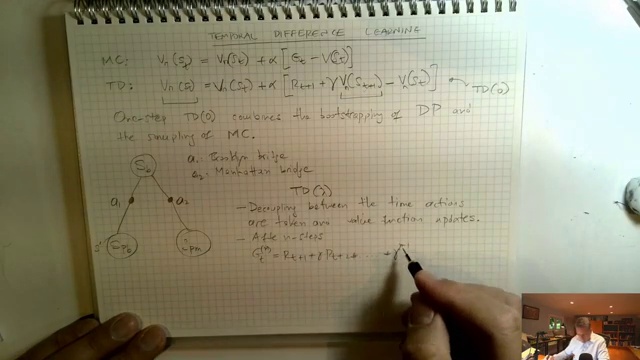 TEMPORAL DIFFERENCE LEARNING
MC: Vπ(St) = Vπ(St) + α [Gt − V(St)]
TD: Vπ(St) = Vπ(St) + α [Rt+1 + γ Vπ(St+1) − Vπ(St)] TD(0)
One-step TD(0) combines the bootstrapping of DP and
the sampling of MC.
S6
a1: Brooklyn bridge
a2: Manhattan bridge
a1 a2
TD(λ)
- Decoupling between the time actions
are taken and value function updates.
- After n-steps
Gt(n) = Rt+1 + γ Rt+2 + ... +
s'